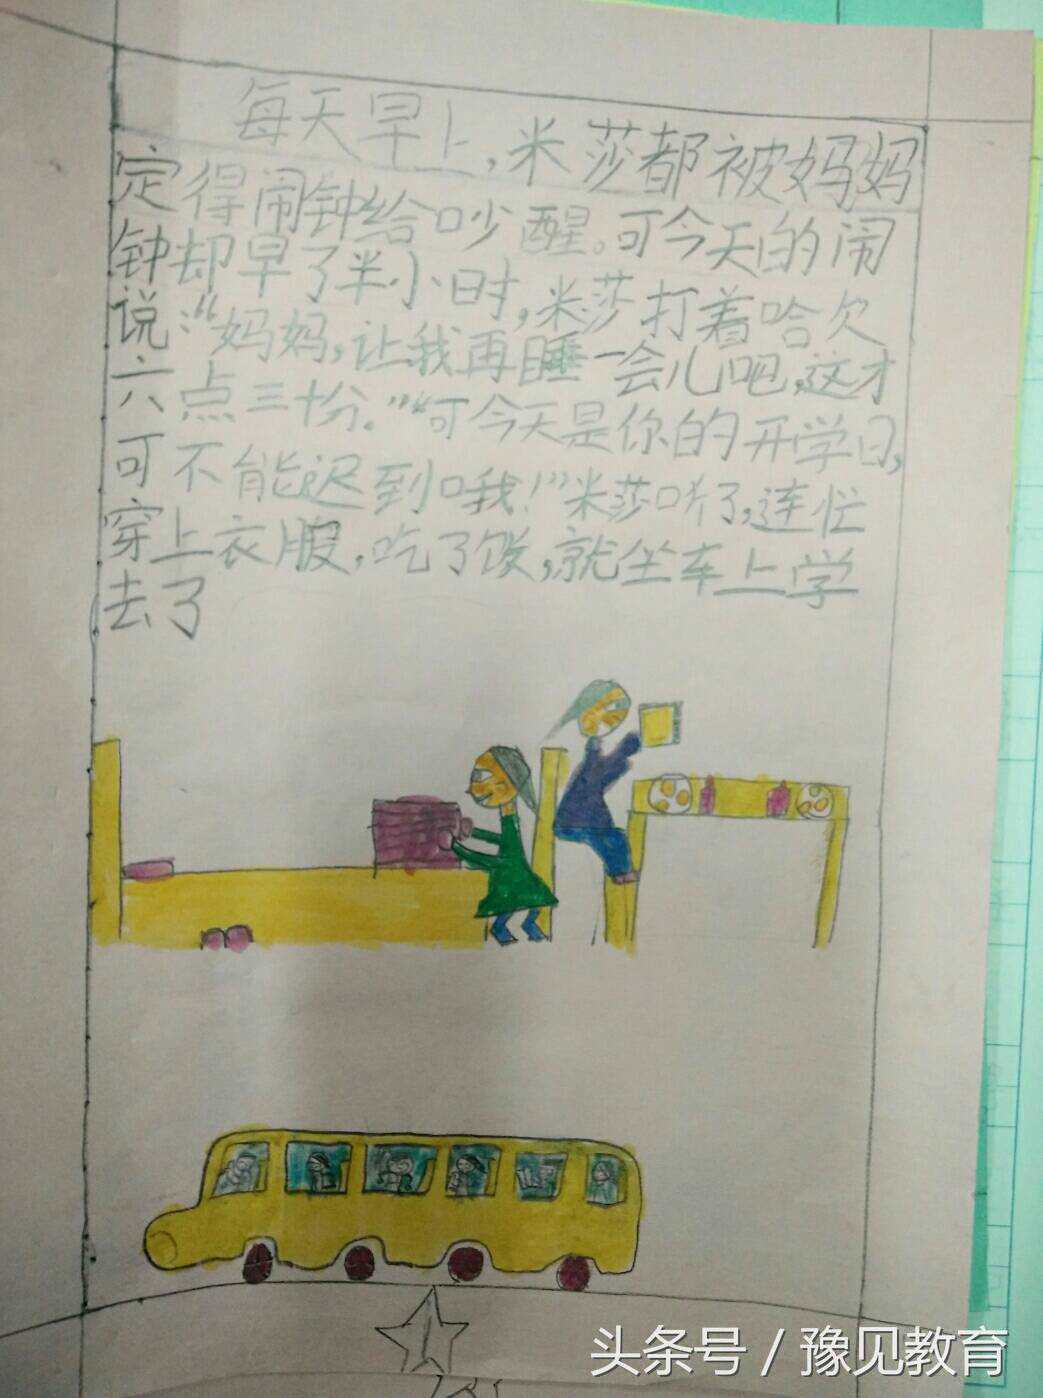 每天早上，米莎都被妈妈
定得闹钟给吵醒。可今天的闹
钟却早了半小时，米莎打着哈欠
说：“妈妈，让我再睡一会儿吧，这才
六点三十份。”“可今天是你的开学日，
可不能迟到哦！”米莎听了，连忙
穿上衣服，吃了饭，就坐车上学
去了
1
头条号 / 豫见教育